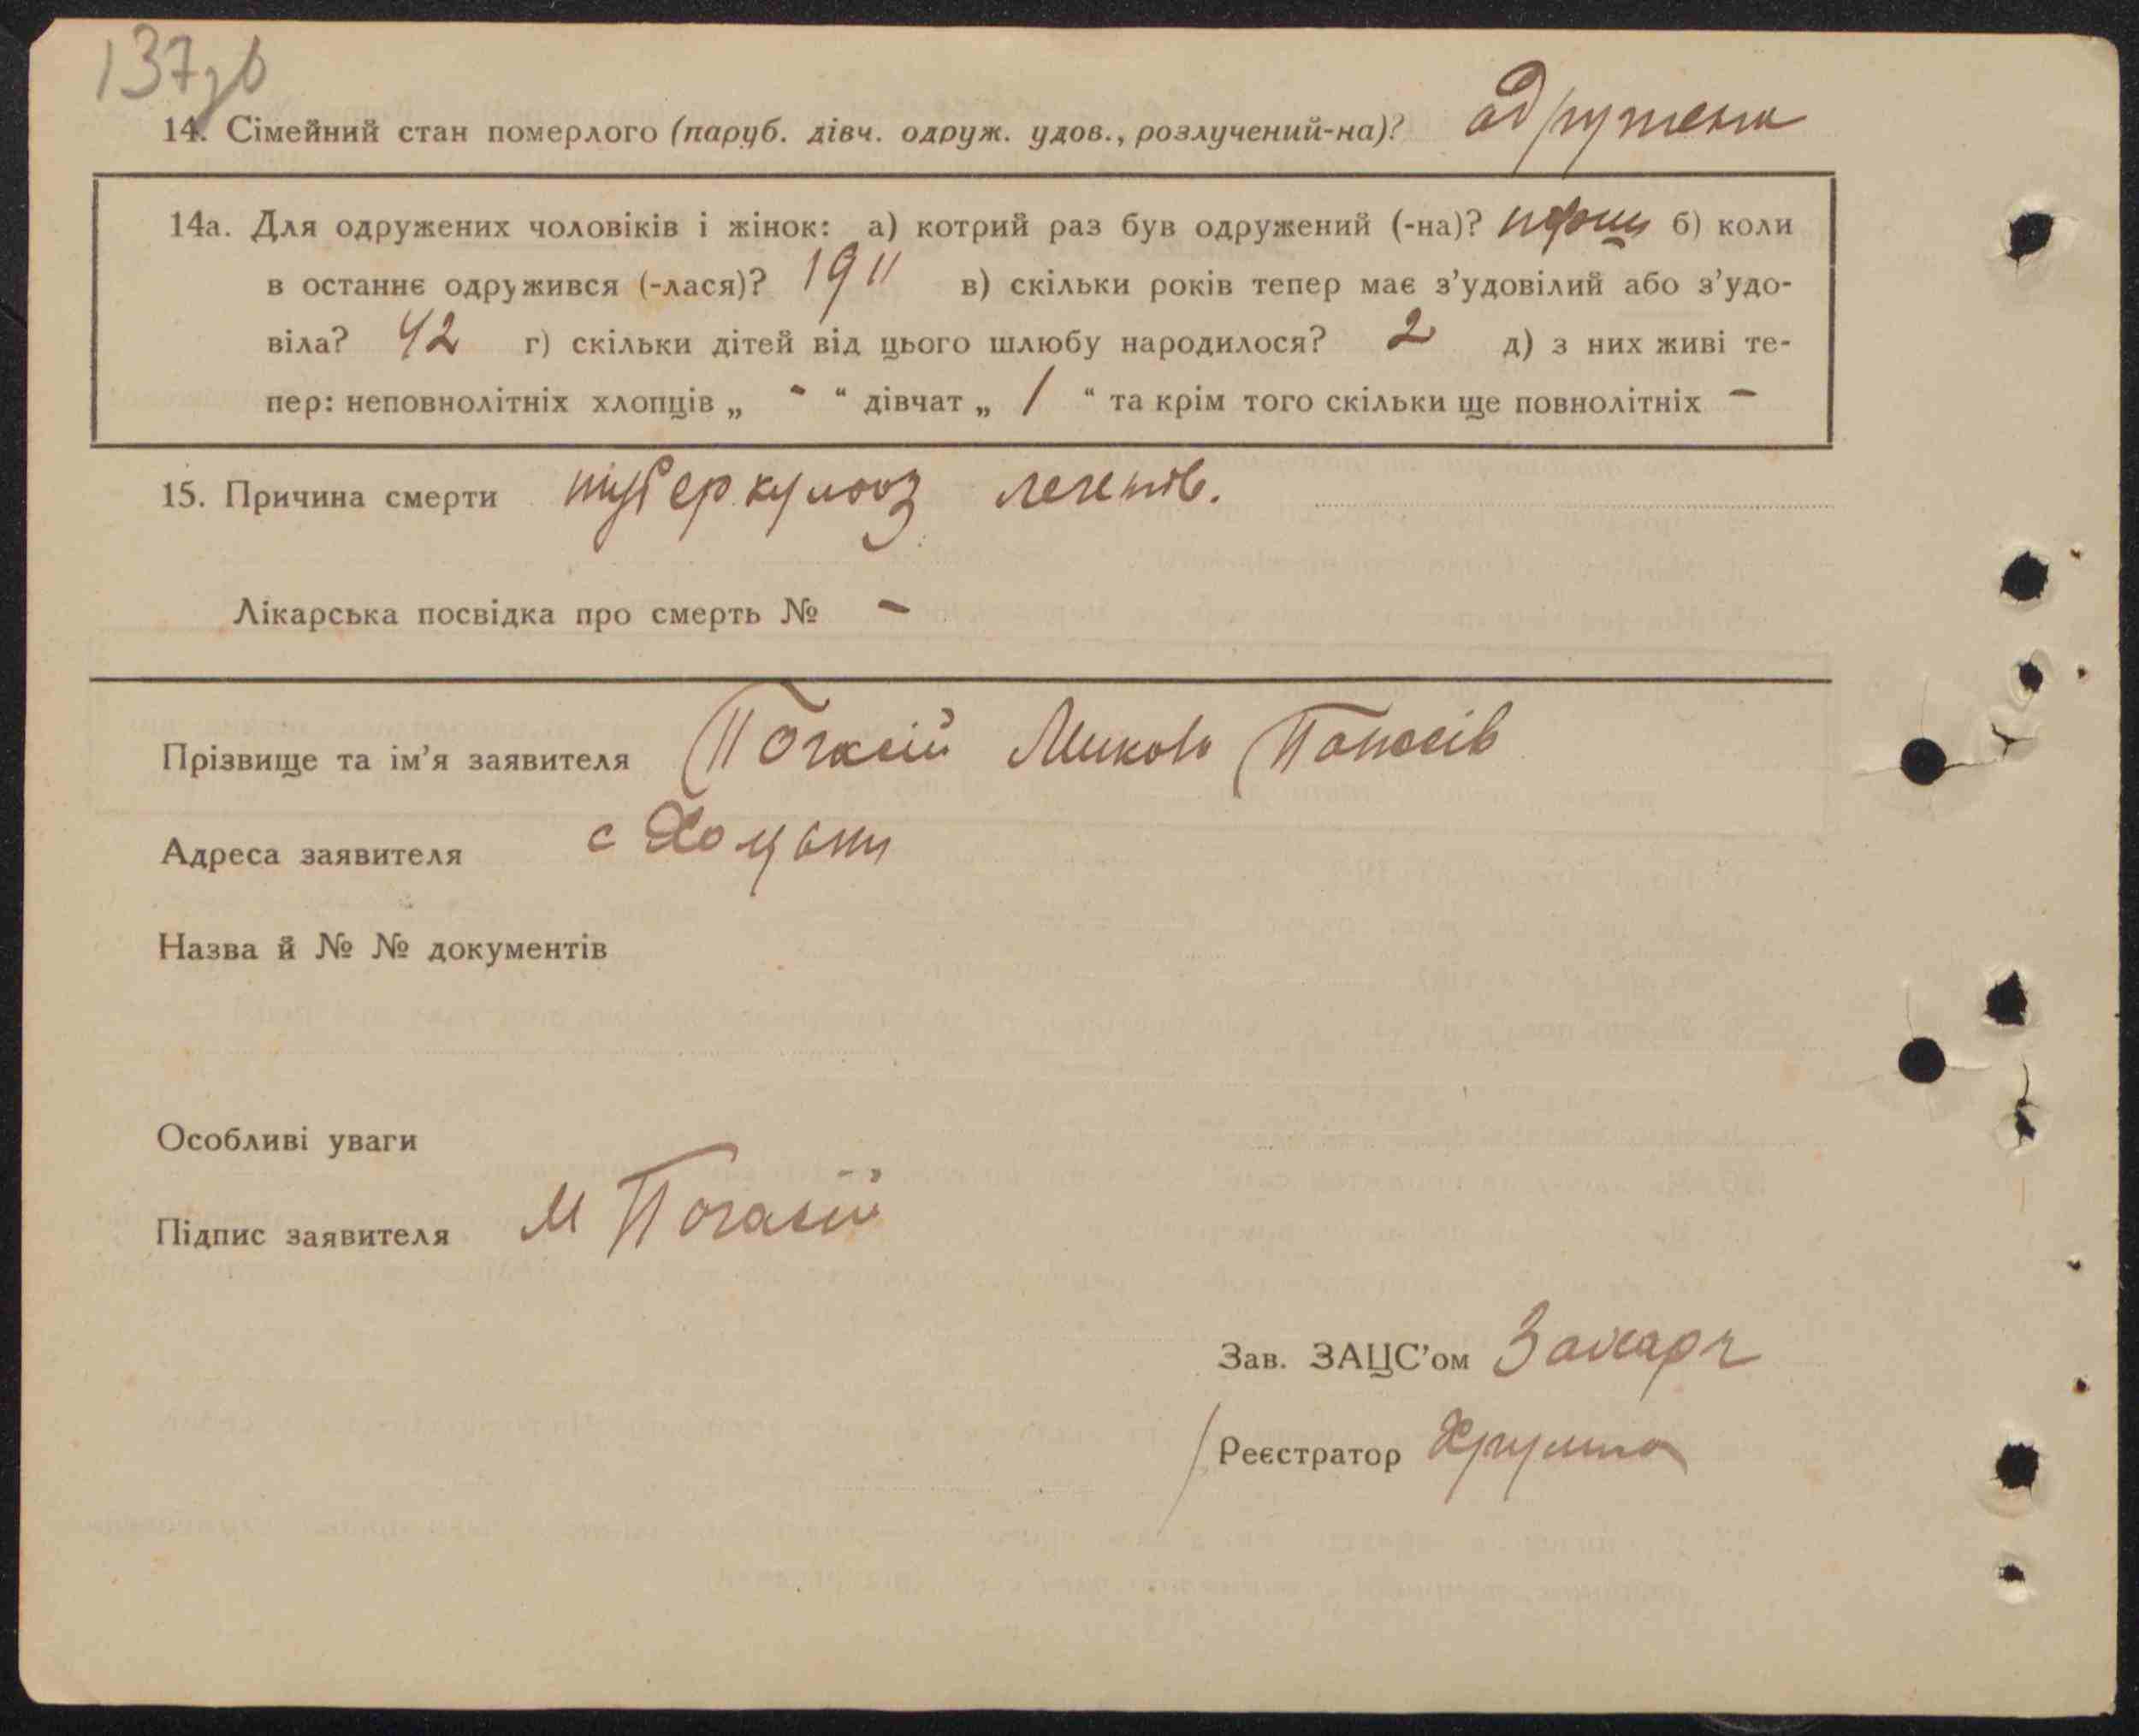 137зв
14. Сімейний стан померлого (паруб. дівч. одруж. удов., розлучений-на)? одружена
14а. Для одружених чоловіків і жінок: а) котрий раз був одружений (-на)? перш б) коли
в останнє одружився (-лася)? 1911 в) скільки років тепер має з'удовілий або з'удо-
віла? 42 г) скільки дітей від цього шлюбу народилося? 2 д) з них живі те-
пер: неповнолітніх хлопців „ - “ дівчат „ 1 “ та крім того скільки ще повнолітніх -
15. Причина смерти туберкульоз легенів.
Лікарська посвідка про смерть № -
Прізвище та ім'я заявителя Микола Панасів
Адреса заявителя с
Назва й № № документів
Особливі уваги
Підпис заявителя М
Зав. ЗАЦС'ом Захарч
Реєстратор